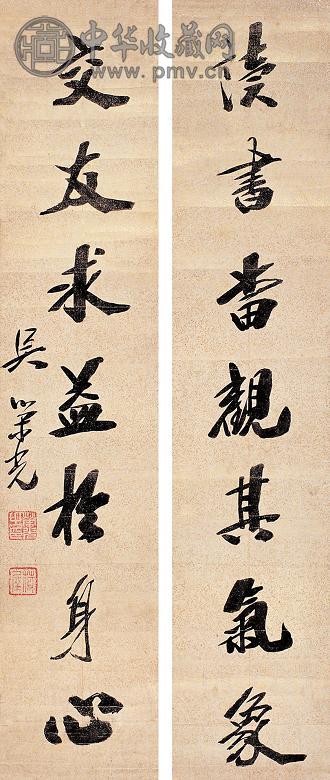 中华收藏网
www.pmv.cn
讀書當觀其氣象
交友求益於身心
吳榮光